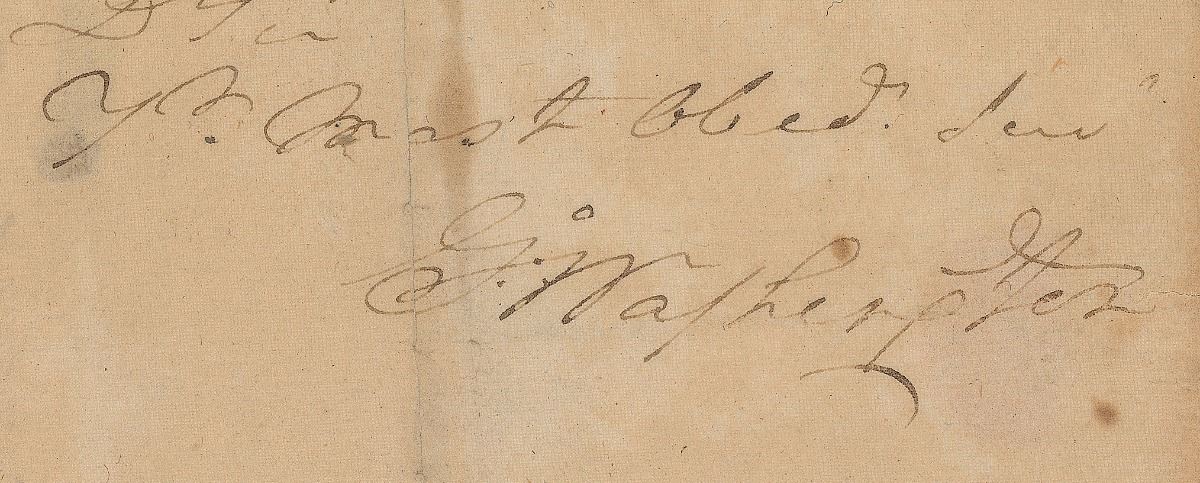 D Sir
Yr. Most Obed. Serv
Go: Washington